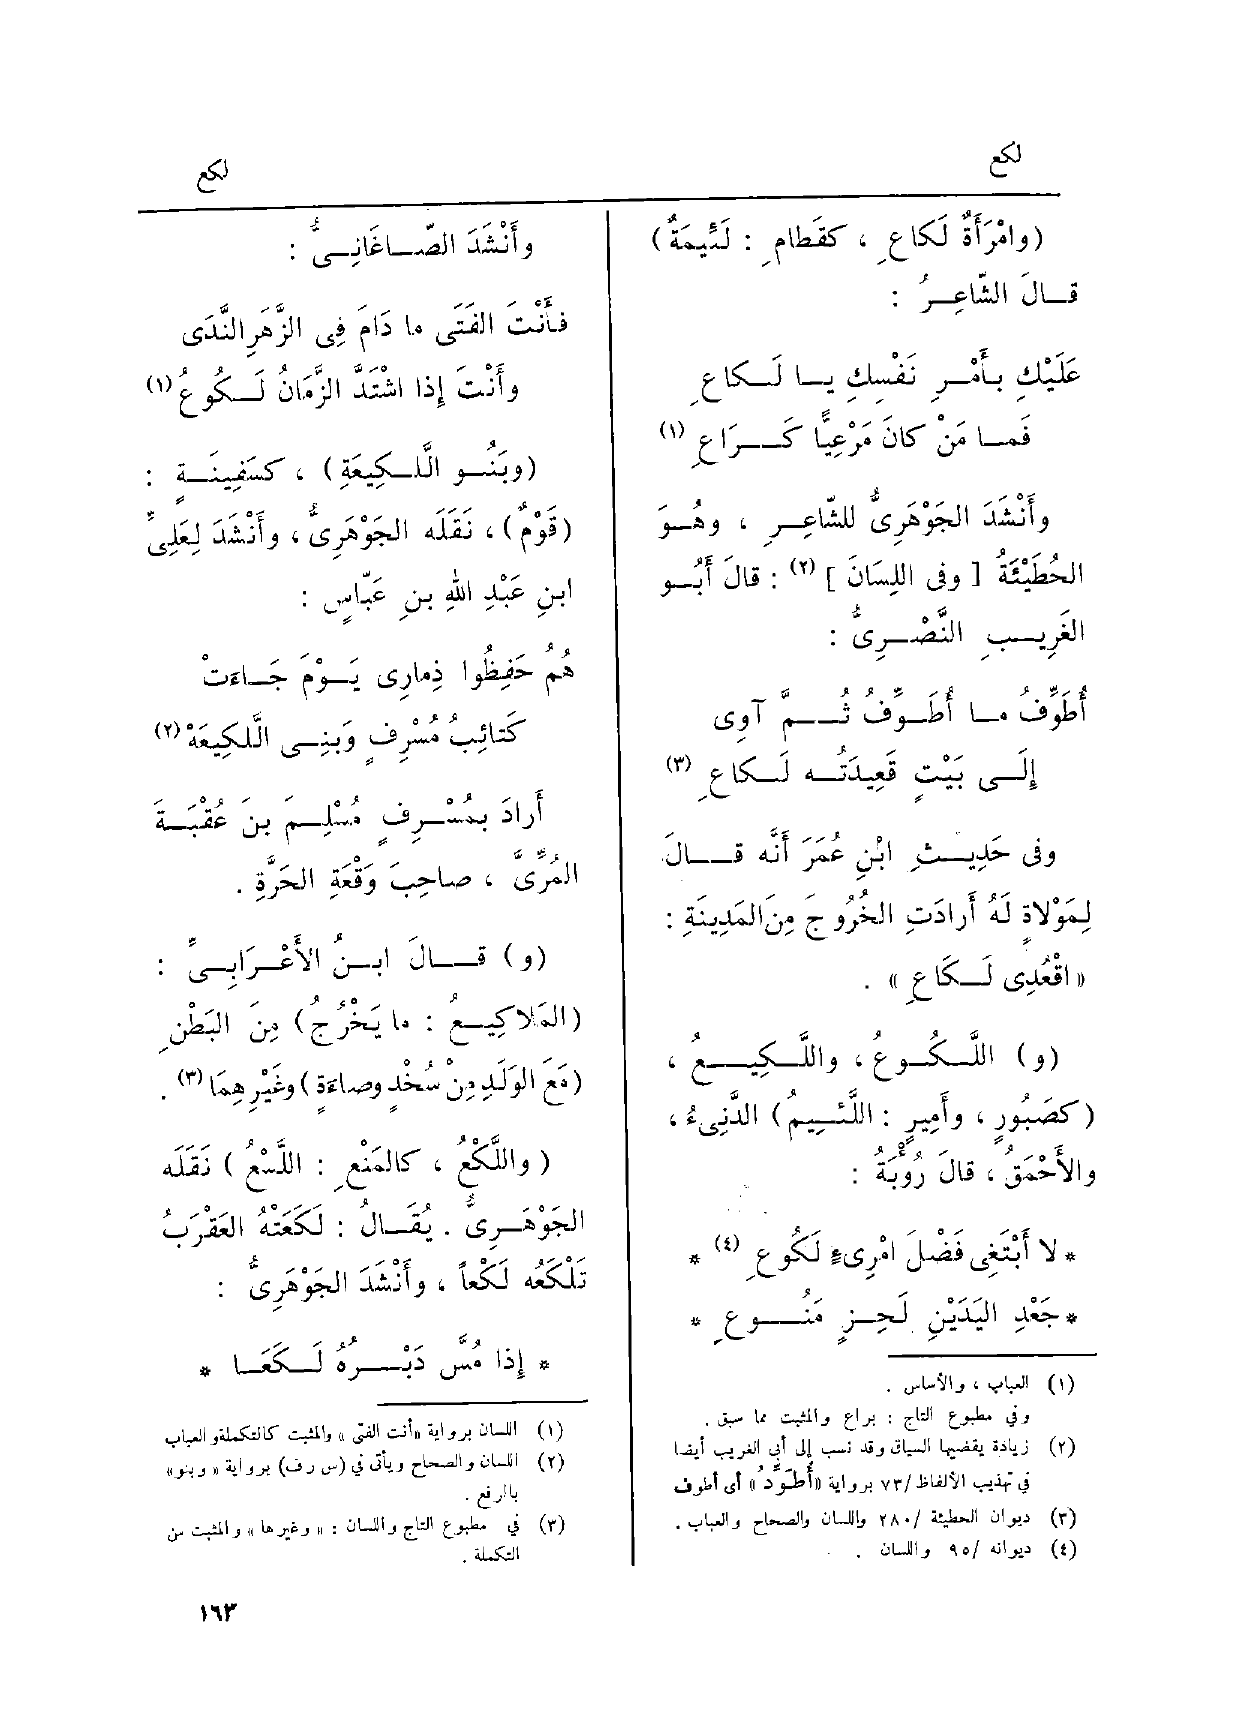 لكع
لكع
(وامْرَأَةٌ لَكاعِ ، كقَطامِ : لَئِيمَةٌ)
قالَ الشّاعِرُ :
عَلَيْكِ بأَمْرِ نَفْسِكِ يا لَكاعِ
فَما مَنْ كانَ مَرْعِيًّا كَرَاعِ (١)
وأَنْشَدَ الجَوْهَرِىُّ للشّاعِرِ ، وهُوَ
الحُطَيْئَةُ [ وفى اللِسَانَ ] (٢) : قالَ أَبُو
الغَرِيبِ النَّصْرِىُّ :
أُطَوِّفُ ما أُطَوِّفُ ثُمَّ آوِى
إِلَى بَيْتٍ قَعِيدَتُه لَكاعِ (٣)
وفى حَدِيثِ ابْنِ عُمَرَ أَنَّه قالَ
لِمَوْلاةٍ لَهُ أَرادَتِ الخُرُوجَ مِنَ المَدِينَةِ :
« اقْعُدِى لَكَاعِ » .
(و) اللَّكُوعُ ، واللَّكِيعُ ،
(كصَبُورٍ ، وأَمِيرٍ : اللَّئِيمُ) الدَّنِىءُ ،
والأَحْمَقُ ، قالَ رُؤْبَةُ :
* لا أَبْتَغِى فَضْلَ امْرِىءٍ لَكُوعِ (٤) *
* جَعْدِ اليَدَيْنِ لَحِزٍ مَنُوعِ *
(١) العباب ، والأساس .
وفي مطبوع التاج : براع والمثبت مما سبق .
(٢) زيادة يقتضيها السياق وقد نسب إلى أبي الغريب أيضا
في تهذيب الألفاظ /٧٣ برواية «أُطَوِّدُ» أى أطوف
(٣) ديوان الحطيئة /٢٨٠ واللسان والصحاح والعباب .
(٤) ديوانه /٩٥ واللسان .
وأَنْشَدَ الصّاغَانِىُّ :
فأَنْتَ الفَتَى ما دَامَ فِى الزَّهَرِ النَّدَى
وأَنْتَ إِذا اشْتَدَّ الزَّمَانُ لَكُوعُ (١)
(وبَنُو اللَّكِيعَةِ) ، كسَفِينَةٍ :
(قَوْمٌ) ، نَقَلَه الجَوْهَرِىُّ ، وأَنْشَدَ لِعَلِىِّ
ابنِ عَبْدِ اللهِ بنِ عَبّاسٍ :
هُمُ حَفِظُوا ذِمارِى يَوْمَ جَاءَتْ
كَتائِبُ مُسْرِفٍ وَبَنِى اللَّكِيعَهْ (٢)
أَرادَ بمُسْرِفٍ مُسْلِمَ بنَ عُقْبَةَ
المُرِّىَّ ، صاحِبَ وَقْعَةِ الحَرَّةِ .
(و) قالَ ابنُ الأَعْرَابِىِّ :
(المَلاكِيعُ : ما يَخْرُجُ) مِنَ البَطْنِ
(مَعَ الوَلَدِ مِنْ سُخْدٍ وصاءَةٍ) وغَيْرِهِمَا (٣) .
( واللَّكْعُ ، كالمَنْعِ : اللَّسْعُ ) نَقَلَه
الجَوْهَرِىُّ . يُقَالُ : لَكَعَتْهُ العَقْرَبُ
تَلْكَعُه لَكْعاً ، وأَنْشَدَ الجَوْهَرِىُّ :
* إِذا مُسَّ دَبْرُهُ لَكَعَا *
(١) اللسان برواية «أنت الفتى» والمثبت كالتكملة والعباب
(٢) اللسان والصحاح ويأتى في (س رف) برواية « وبنو»
بالرفع .
(٣) في مطبوع التاج واللسان : « وغيرها » والمثبت من
التكملة .
١٦٣